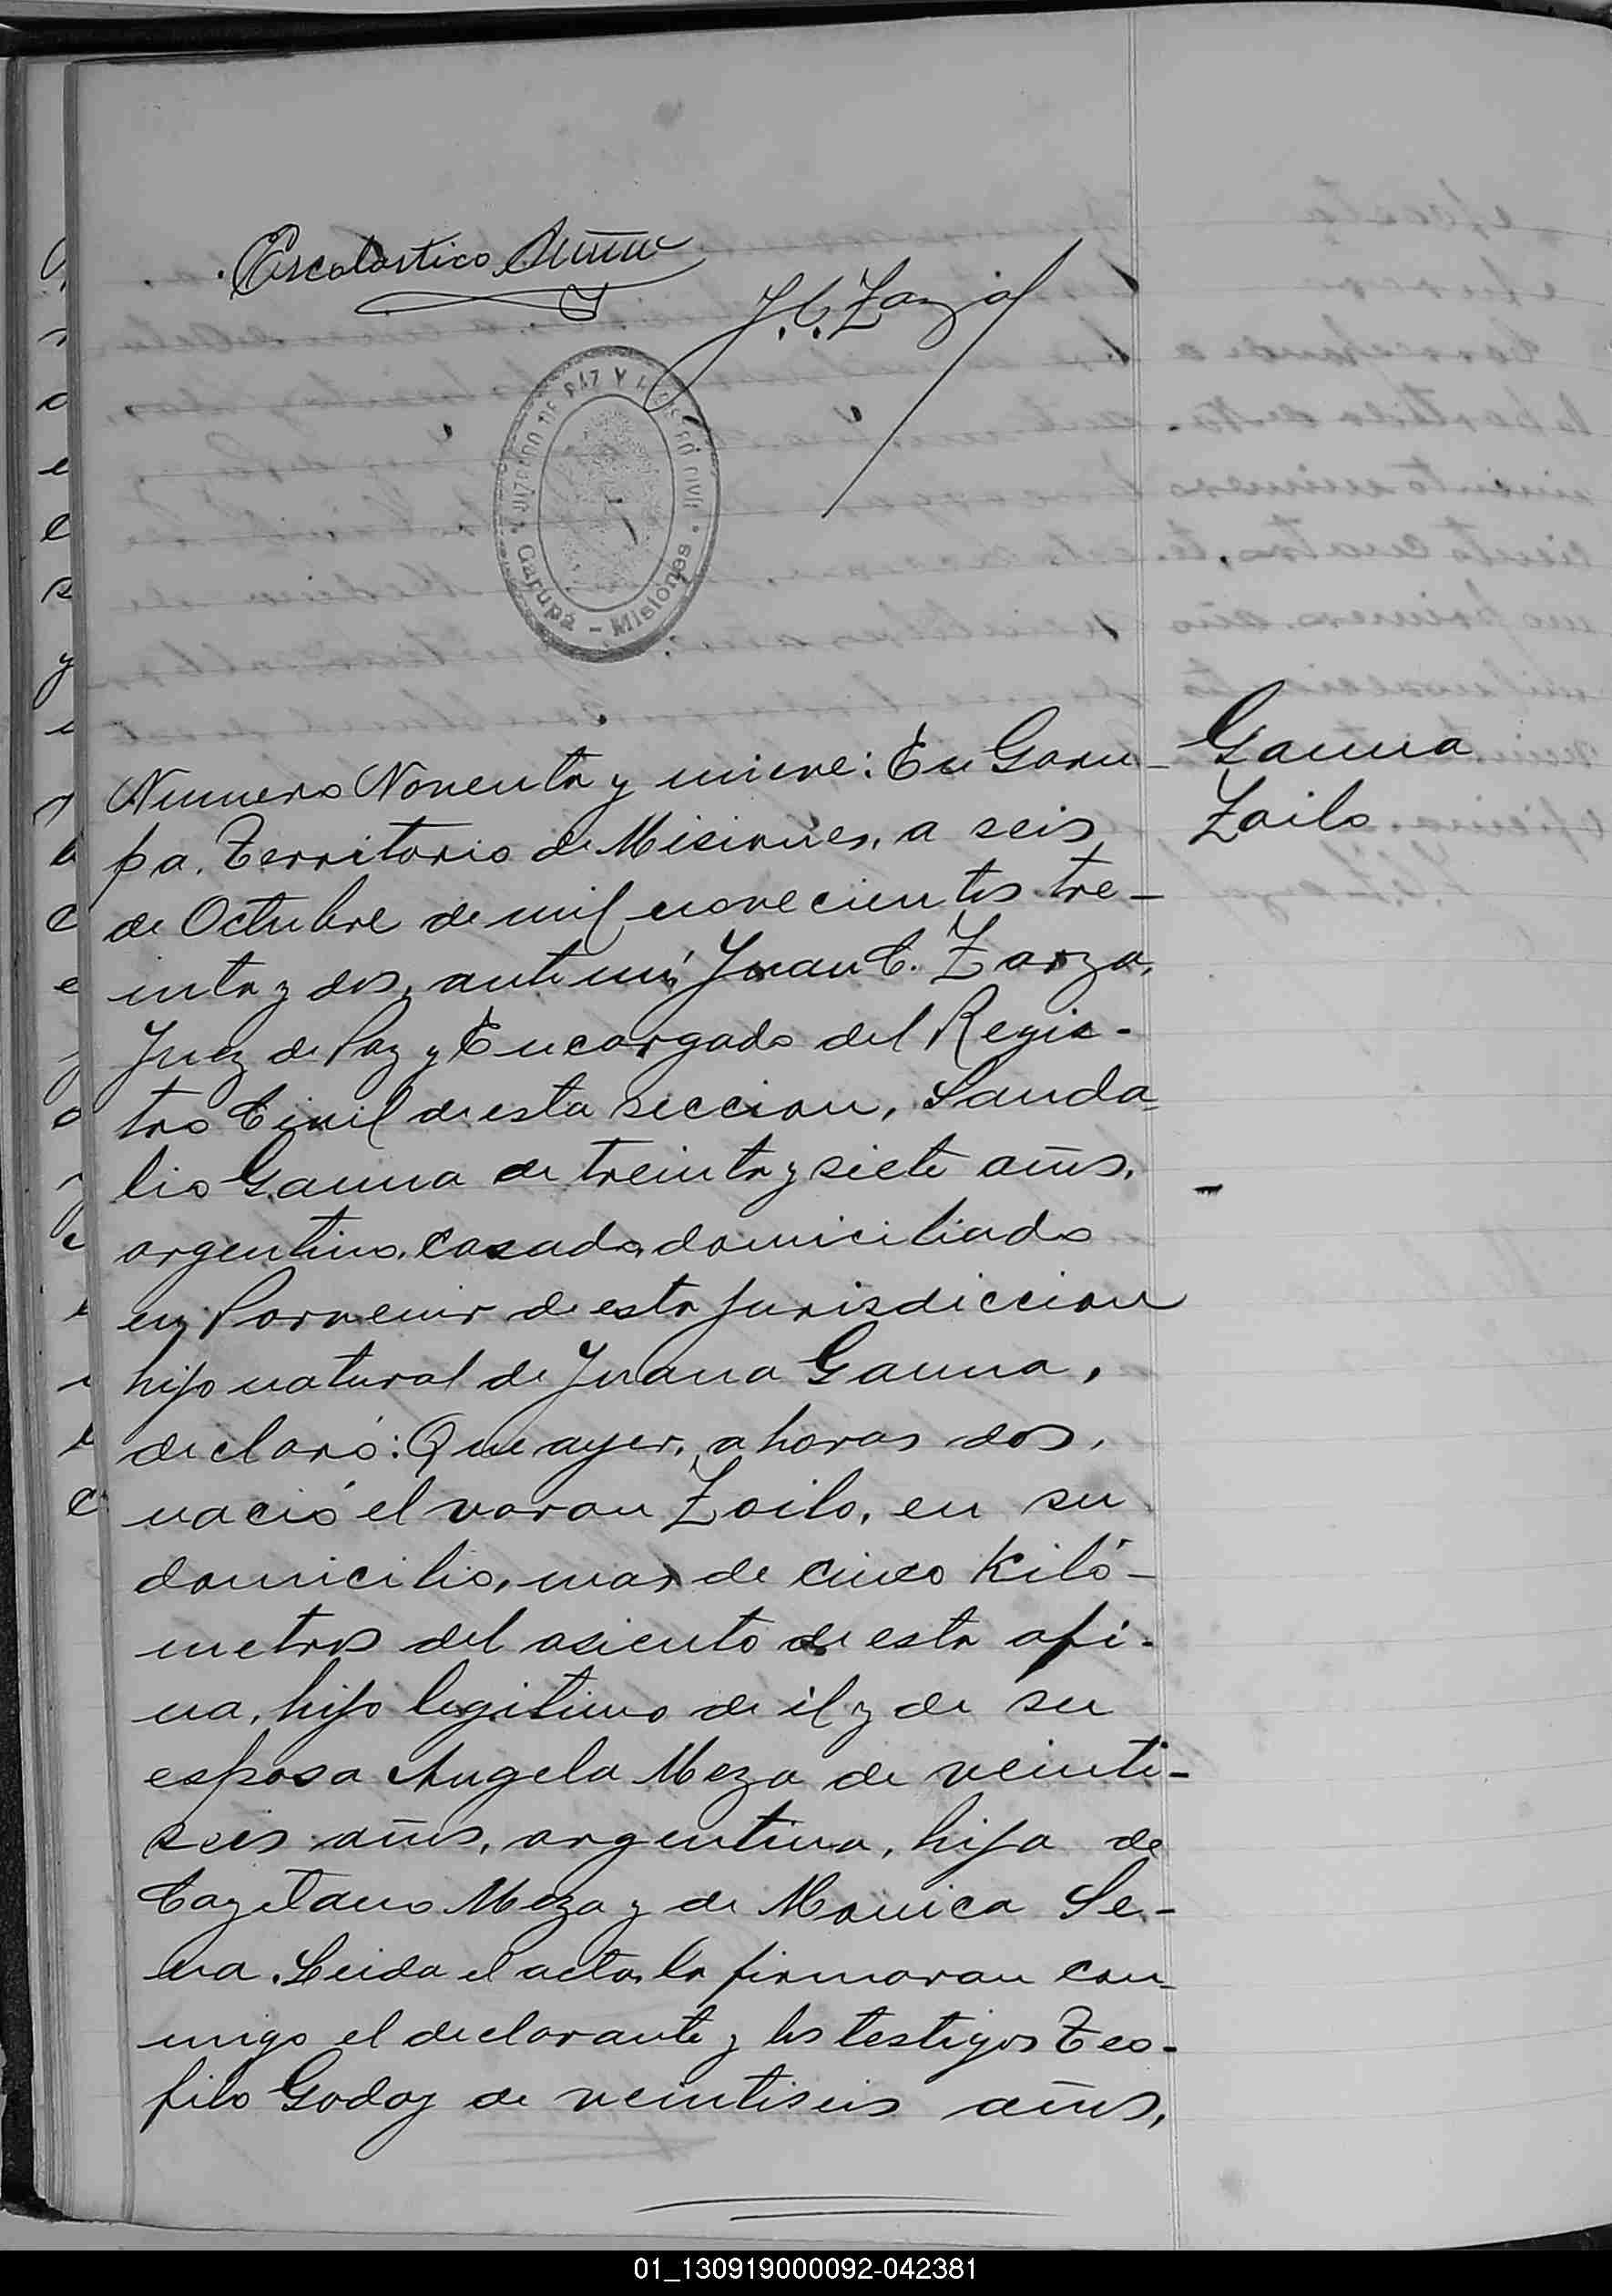 Escolastico
J. C. Zarza
JUZGADO DE PAZ Y REGISTRO CIVIL
Garupá - Misiones
Gauna
Zoilo
Numero Noventa y nueve: En Garu-
pa. Territorio de Misiones, a seis
de Octubre de mil novecientos tre-
inta y dos, ante mí, Juan C. Zarza,
Juez de Paz y Encargado del Regis-
tro Civil de esta seccion, Sanda-
lio Gauna de treinta y siete años,
argentino, casado, domiciliado
en Porvenir de esta jurisdiccion
hijo natural de Juana Gauna,
declaró: Que ayer, a horas dos,
nació el varon Zoilo, en su
domicilio, mas de cinco Kiló-
metros del asiento de esta ofi-
na, hijo legitimo de él y de su
esposa Angela Meza de veinti-
seis años, argentina, hija de
Cayetano Meza y de Monica Se-
na. Leida el acta, la firmaran con-
migo el declarante y los testigos Teo-
filo Godoy de veintiseis años,
01_130919000092-042381